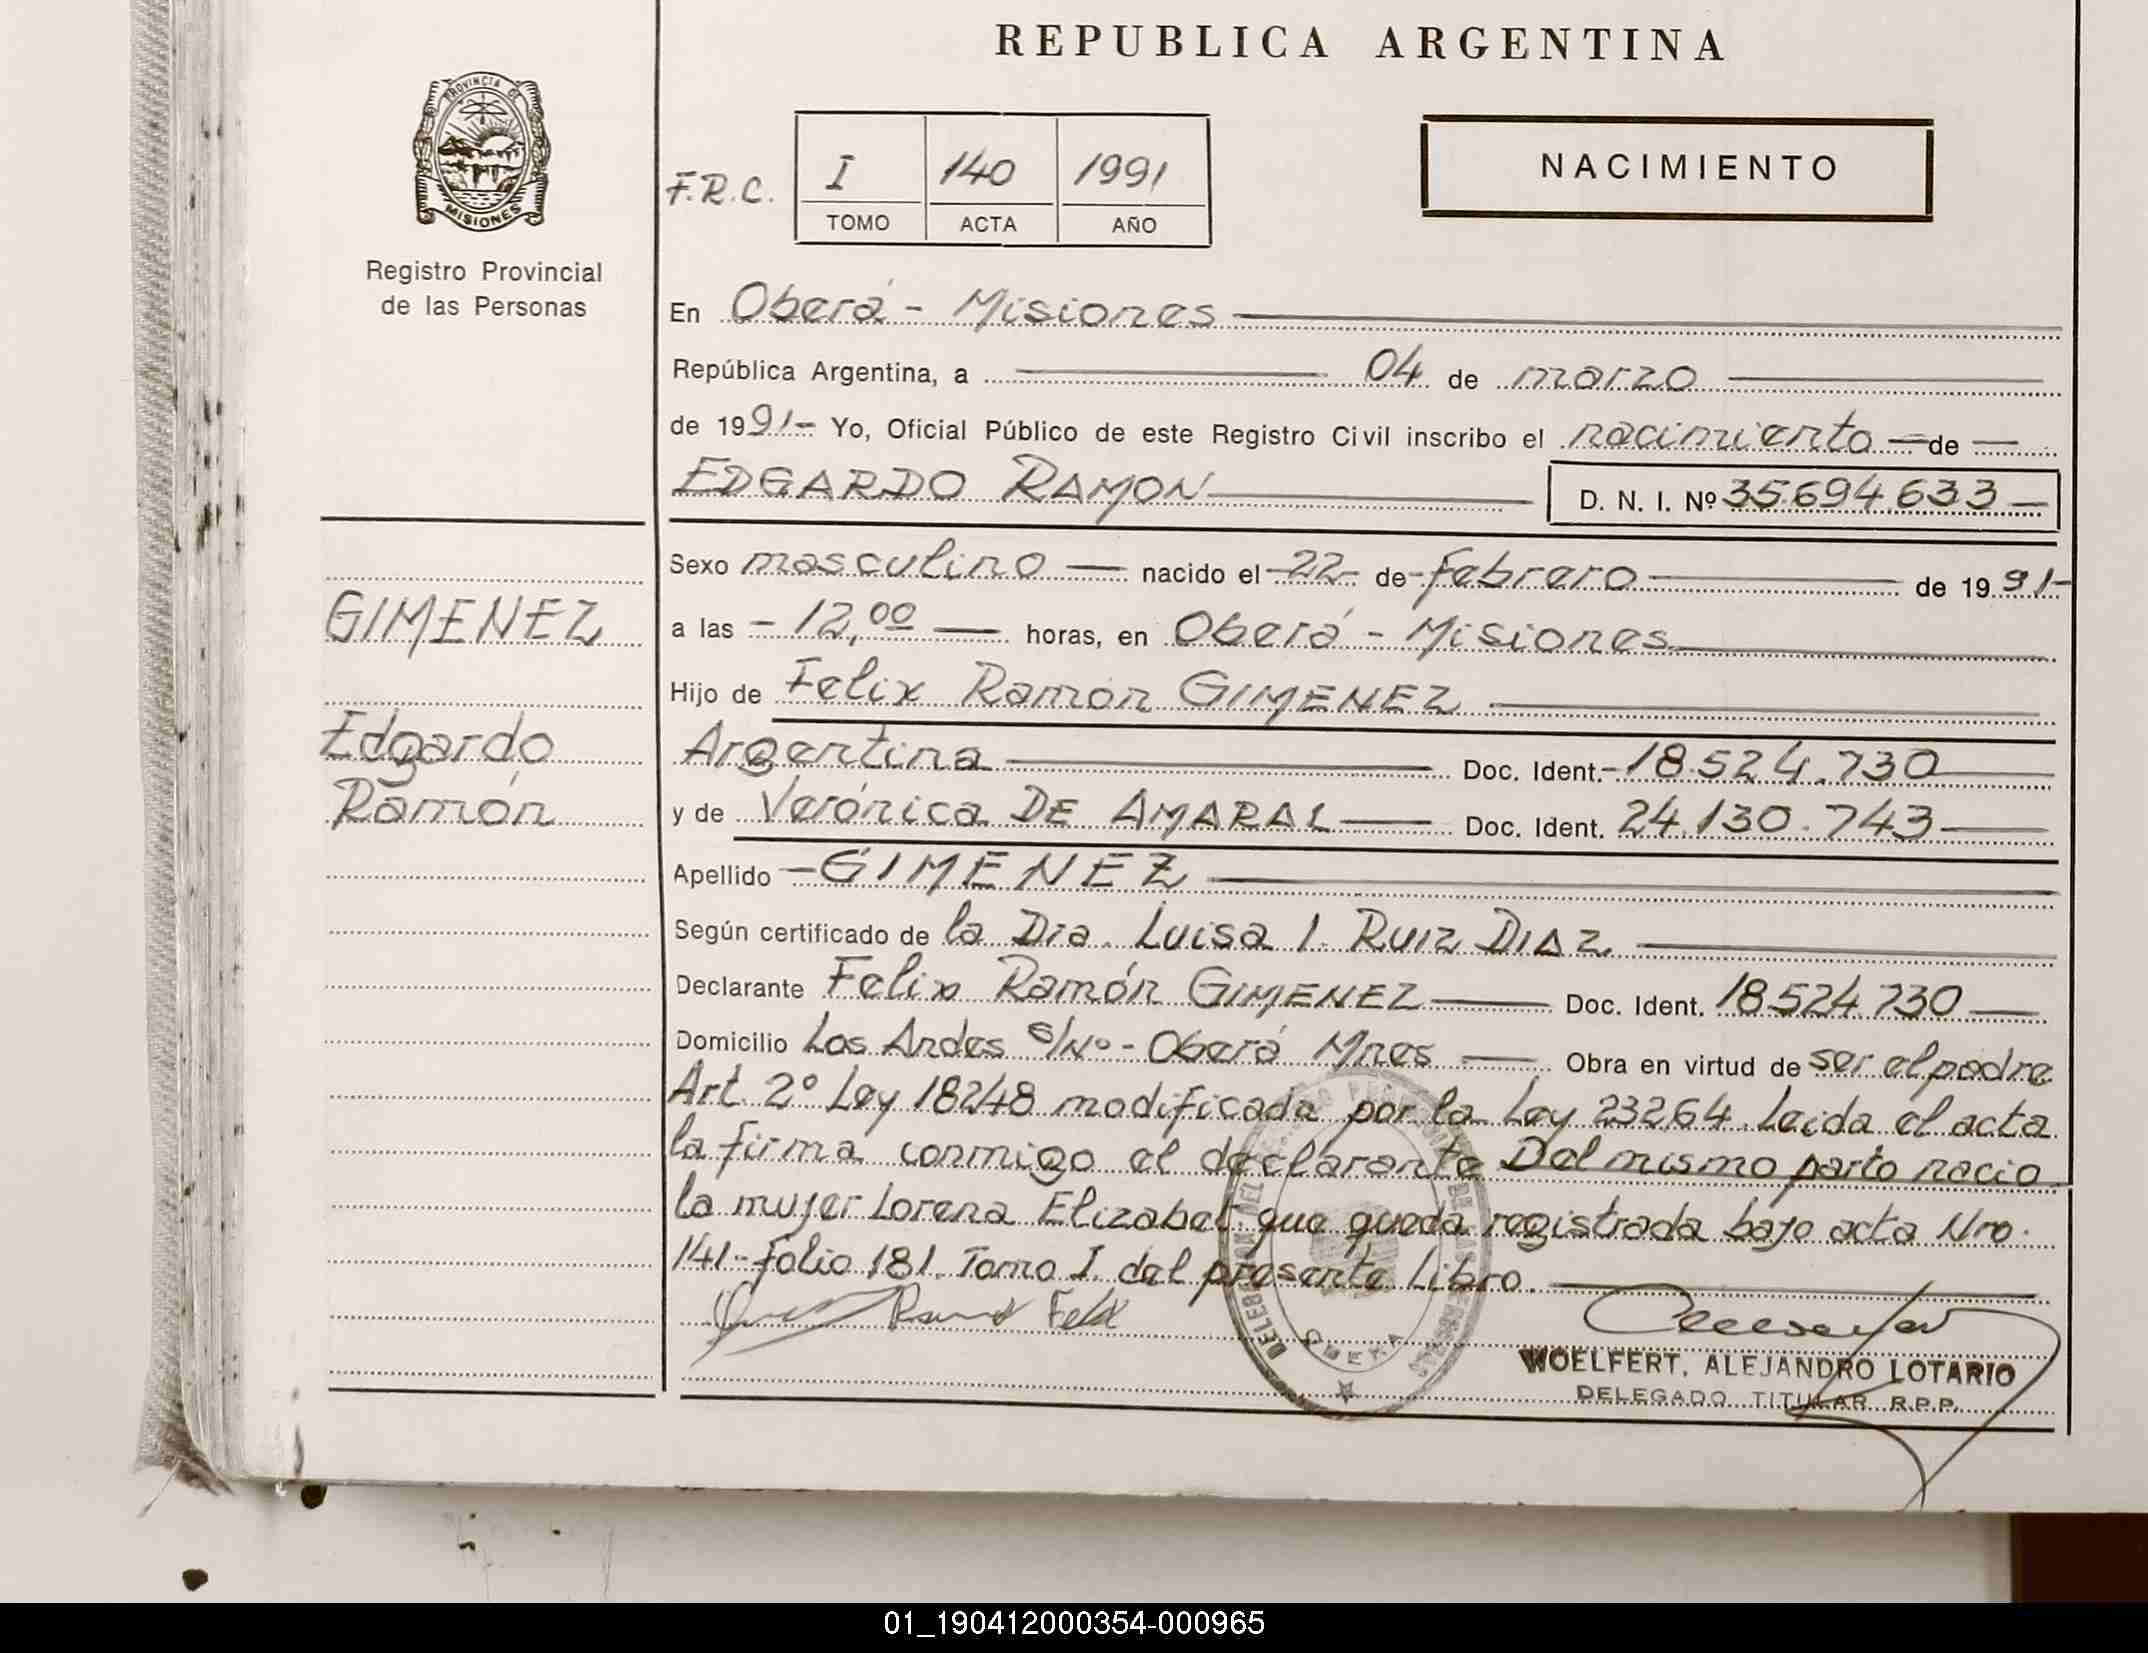 REPUBLICA ARGENTINA
PROVINCIA DE
MISIONES
Registro Provincial
de las Personas
F.R.C.
I 140 1991
TOMO ACTA AÑO
NACIMIENTO
En Oberá - Misiones
República Argentina, a 04 de marzo
de 1991- Yo, Oficial Público de este Registro Civil inscribo el nacimiento de
EDGARDO RAMON D. N. I. Nº 35.694.633
GIMENEZ
Edgardo
Ramón
Sexo masculino nacido el 22 de febrero de 1991-
a las - 12,00 horas, en Oberá - Misiones
Hijo de Felix Ramón GIMENEZ
Argentina Doc. Ident. 18.524.730
y de Verónica DE AMARAL Doc. Ident. 24.130.743
Apellido GIMENEZ
Según certificado de la Dra. Luisa I. RUIZ DIAZ
Declarante Felix Ramón GIMENEZ Doc. Ident. 18.524.730
Domicilio Los Andes s/Nº - Oberá Mnes Obra en virtud de ser el padre
Art. 2º Ley 18248 modificada por la Ley 23264. Leida el acta
la firma conmigo el declarante Del mismo parto nacio
la mujer Lorena Elizabet que queda registrada bajo acta Nro.
141- Folio 181. Tomo I. del presente Libro.
Ramon Felix
OBERA
WOELFERT, ALEJANDRO LOTARIO
DELEGADO TITULAR R.P.P.
01_190412000354-000965